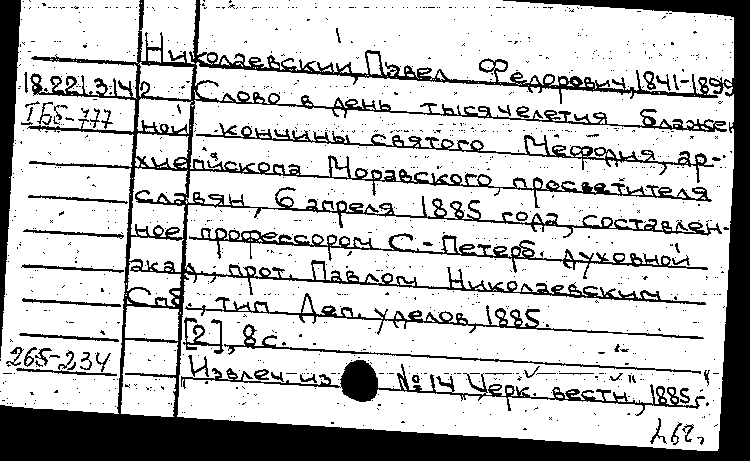 Николаевский, Павел Федорович, 1841-1899
18.221.3.142 Слово в день тысячелетия блажен
IБ5-777 ной кончины святого Мефодия, ар-
хиепископа Моравского, просветителя
славян, 6 апреля 1885 года, составлен-
ное профессором С.-Петерб. духовной
акад., прот. Павлом Николаевским.
Спб., тип. Деп. уделов, 1885.
[2], 8 с.
265-234
Извлеч. из № 14 „Черк. вестн.", 1885 г.